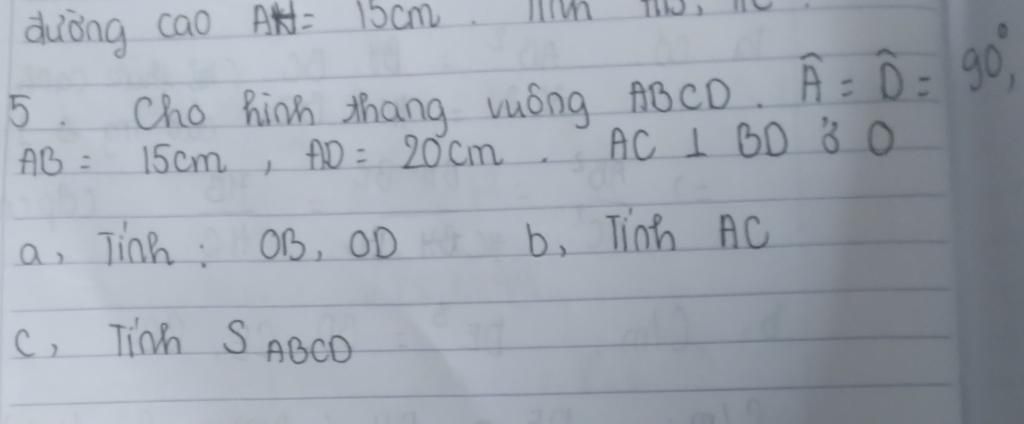 đường cao AH = 15cm. Tính
5. Cho hình thang vuông ABCD. Â = D̂ = 90°,
AB = 15cm, AD = 20cm. AC ⊥ BD ở O
a, Tính: OB, OD b, Tính AC
c, Tính S ABCD